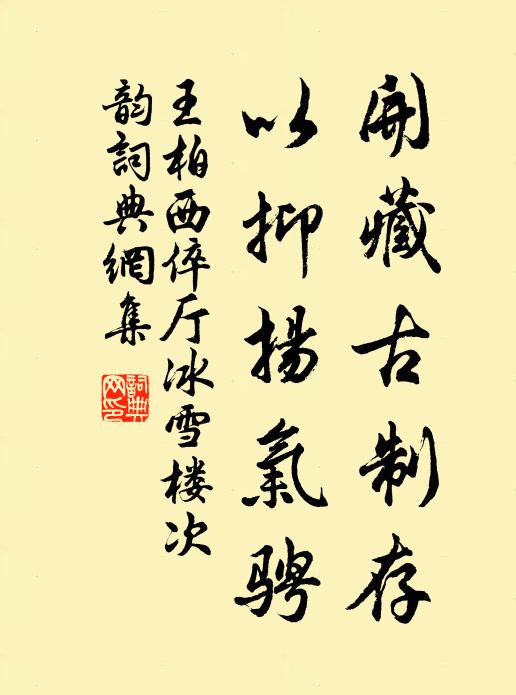 開藏古制存
以抑揚氣骋
王柏西倅厅冰雪楼次
韵詞典網集
詞典網印